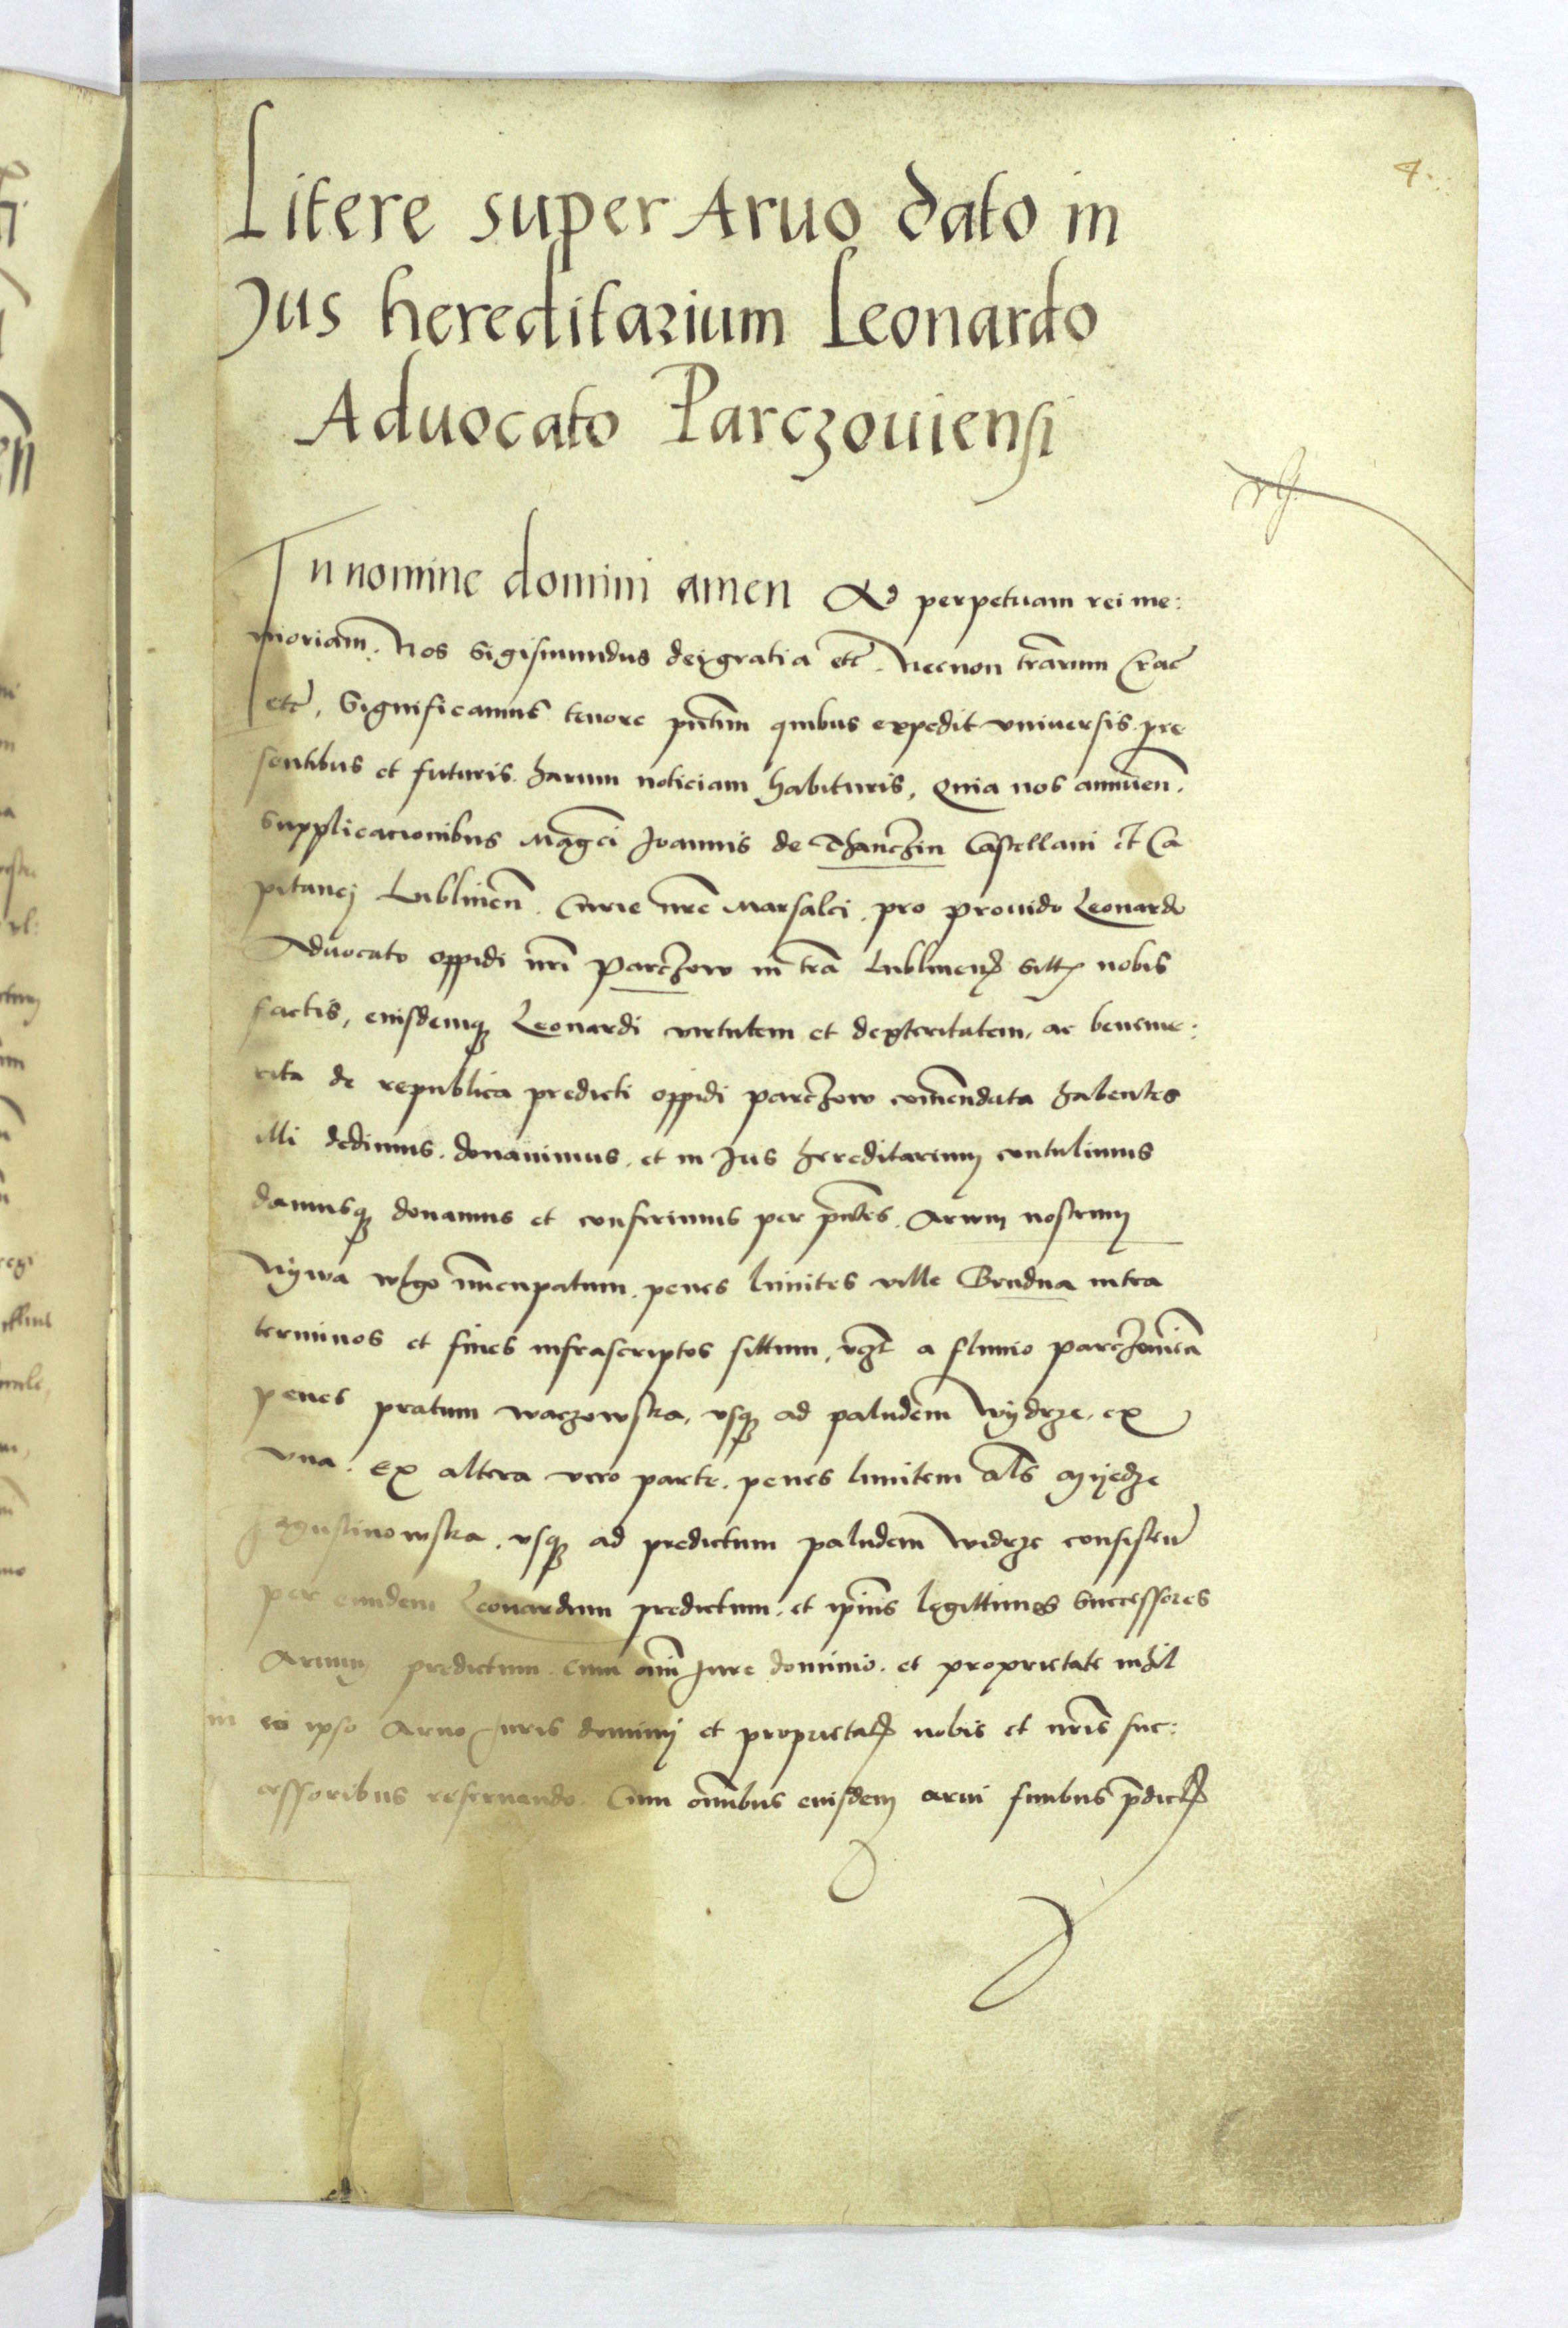 4.
Litere super Aruo dato in
Jus hereditarium Leonardo
Aduocato Parczouiensi
In nomine domini amen Ad perpetuam rei me:
moriam. Nos Sigismundus dei gratia etc̃. Necnon tr̃arum Crac̃
etc̃, Significamus tenore pñtium quibus expedit vniuersis. pre
sentibus et futuris. harum noticiam habituris, Quia nos annuen̄.
Supplicacionibus Magc̃i Joannis de Thanczin Castellani et Ca
pitanej Lublineñ. Curie nr̃e Marsalci. pro prouido Leonardo
Aduocato oppidi nr̃i Parczow in tr̃a Lublinenß sitt̃ nobis
factis, eiusdemqꝫ Leonardi virtutem et dexteritatem, ac beneme:
rita de republica predicti oppidi parczow com̃endata habentes
illi dedimus. donauimus. et in Jus hereditarium contulimus
damusqꝫ donamus et conferimus per pñtes. Aruum nostrum
Nywa wlgo nũcupatum. penes limites ville Brudna intra
terminos et fines infrascriptos sittum, vꝫt a fluuio parczowicã
penes pratum waczowska, vsqꝫ ad paludem̃ Wydrze. ex
vna. Ex altera vero parte. penes limitem al̃s myedze
vsqꝫ ad predictum paludem̃ widrze consisten̄
per eundem Leonardum predictum. et ip̃ius legittimos Successores
Aruum predictum. cum om̃i Jure dominio. et proprietate nihil
in eo ipso Aruo Juris dominij et proprietatꝭ nobis et nr̃is suc:
cessoribus reseruando. Cum om̃ibus eiusdem arui finibus p̃dictꝭ